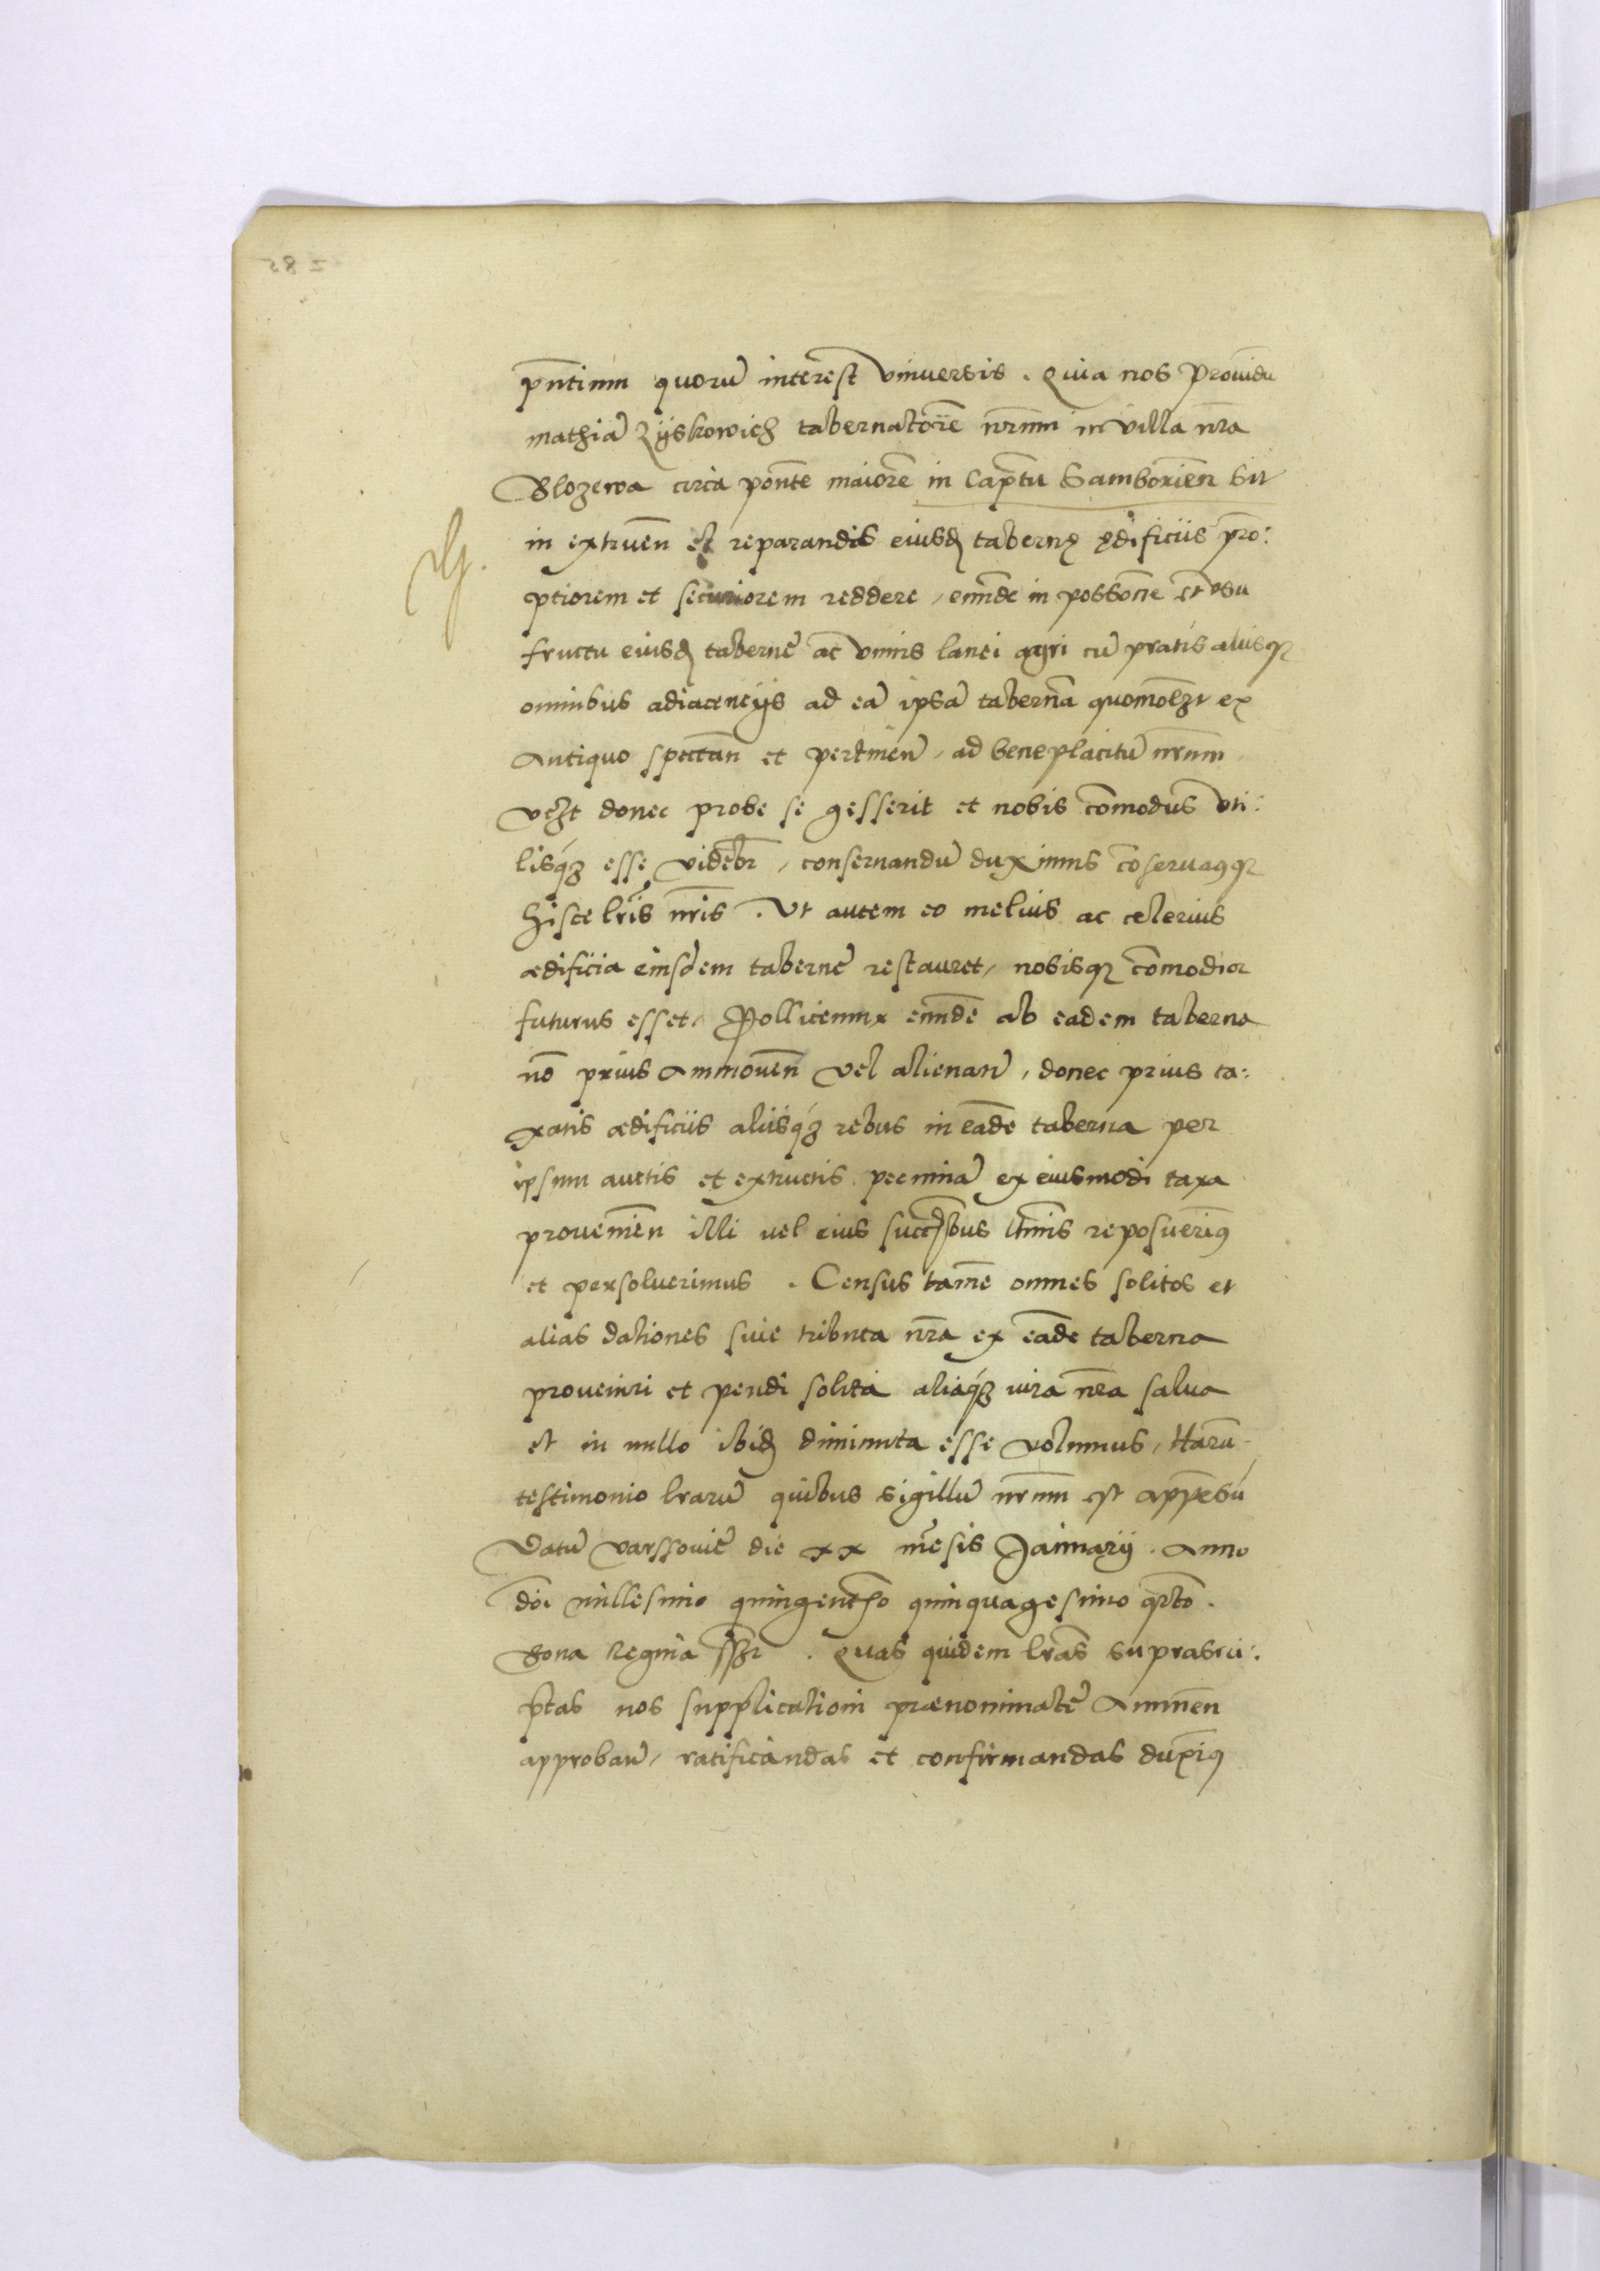 pñtium quorũ interest vniuersis. Quia nos prouidũ
mathiã Zÿskowich tabernatorẽ nr̃um in villa nr̃a
Blozewa circa pontẽ maiorẽ in Captũ Samboriẽn sit
in extruen̄ et reparandis eiusd tabernę ędificiis pro:
ptiorem et securiorem reddere, eundẽ in possonẽ et vsu
fructu eiusd tabernẽ ac vnius lanei agri cũ pratis aliisq
omnibus adiacencÿs ad eã ipsã tabernã quomolzt ex
Antiquo spectan̄ et pertinen̄, ad beneplacitũ nr̃um
vczt donec probe se gesserit et nobis cõmodus vti:
lisq₃ esse videbr, conseruandũ duximus cõseruamusq
hisce lr̃is nr̃is. Vt autem eo melius ac celerius
ædificia eiusdem tabernẽ restauret, nobisq cõmodior
futurus esset, Pollicemur eundẽ ab eadem taberna
nõ prius Ammouen̄ vel alienan̄, donec prius ta:
xatis ædificiis aliisq₃ rebus in eadẽ taberna per
ipsum auctis et extructis pecuniã ex eiusmodi taxa
prouenien̄ illi vel eius succ̃sbus ltimis reposuerimꝰ
et persoluerimus. Census tamẽ omnes solitos et
alias dationes siue tributa nr̃a ex eadẽ taberna
proueniri et pendi solita aliaq₃ iura nr̃a salua
et in nullo ibid diminuta esse volumus, Harũ
testimonio lr̃arũ quibus sigillũ nr̃um est appẽsũ
Datũ varssouiẽ die xx mẽsis Januarÿ. Anno
dõi millesimo quingentẽo quinquagesimo qrto.
Bona Regina sszt. Quas quidem lr̃as suprascri:
ptas nos supplicationi prænominatẽ Annuen̄
approban̄, ratificandas et confirmandas duximꝰ